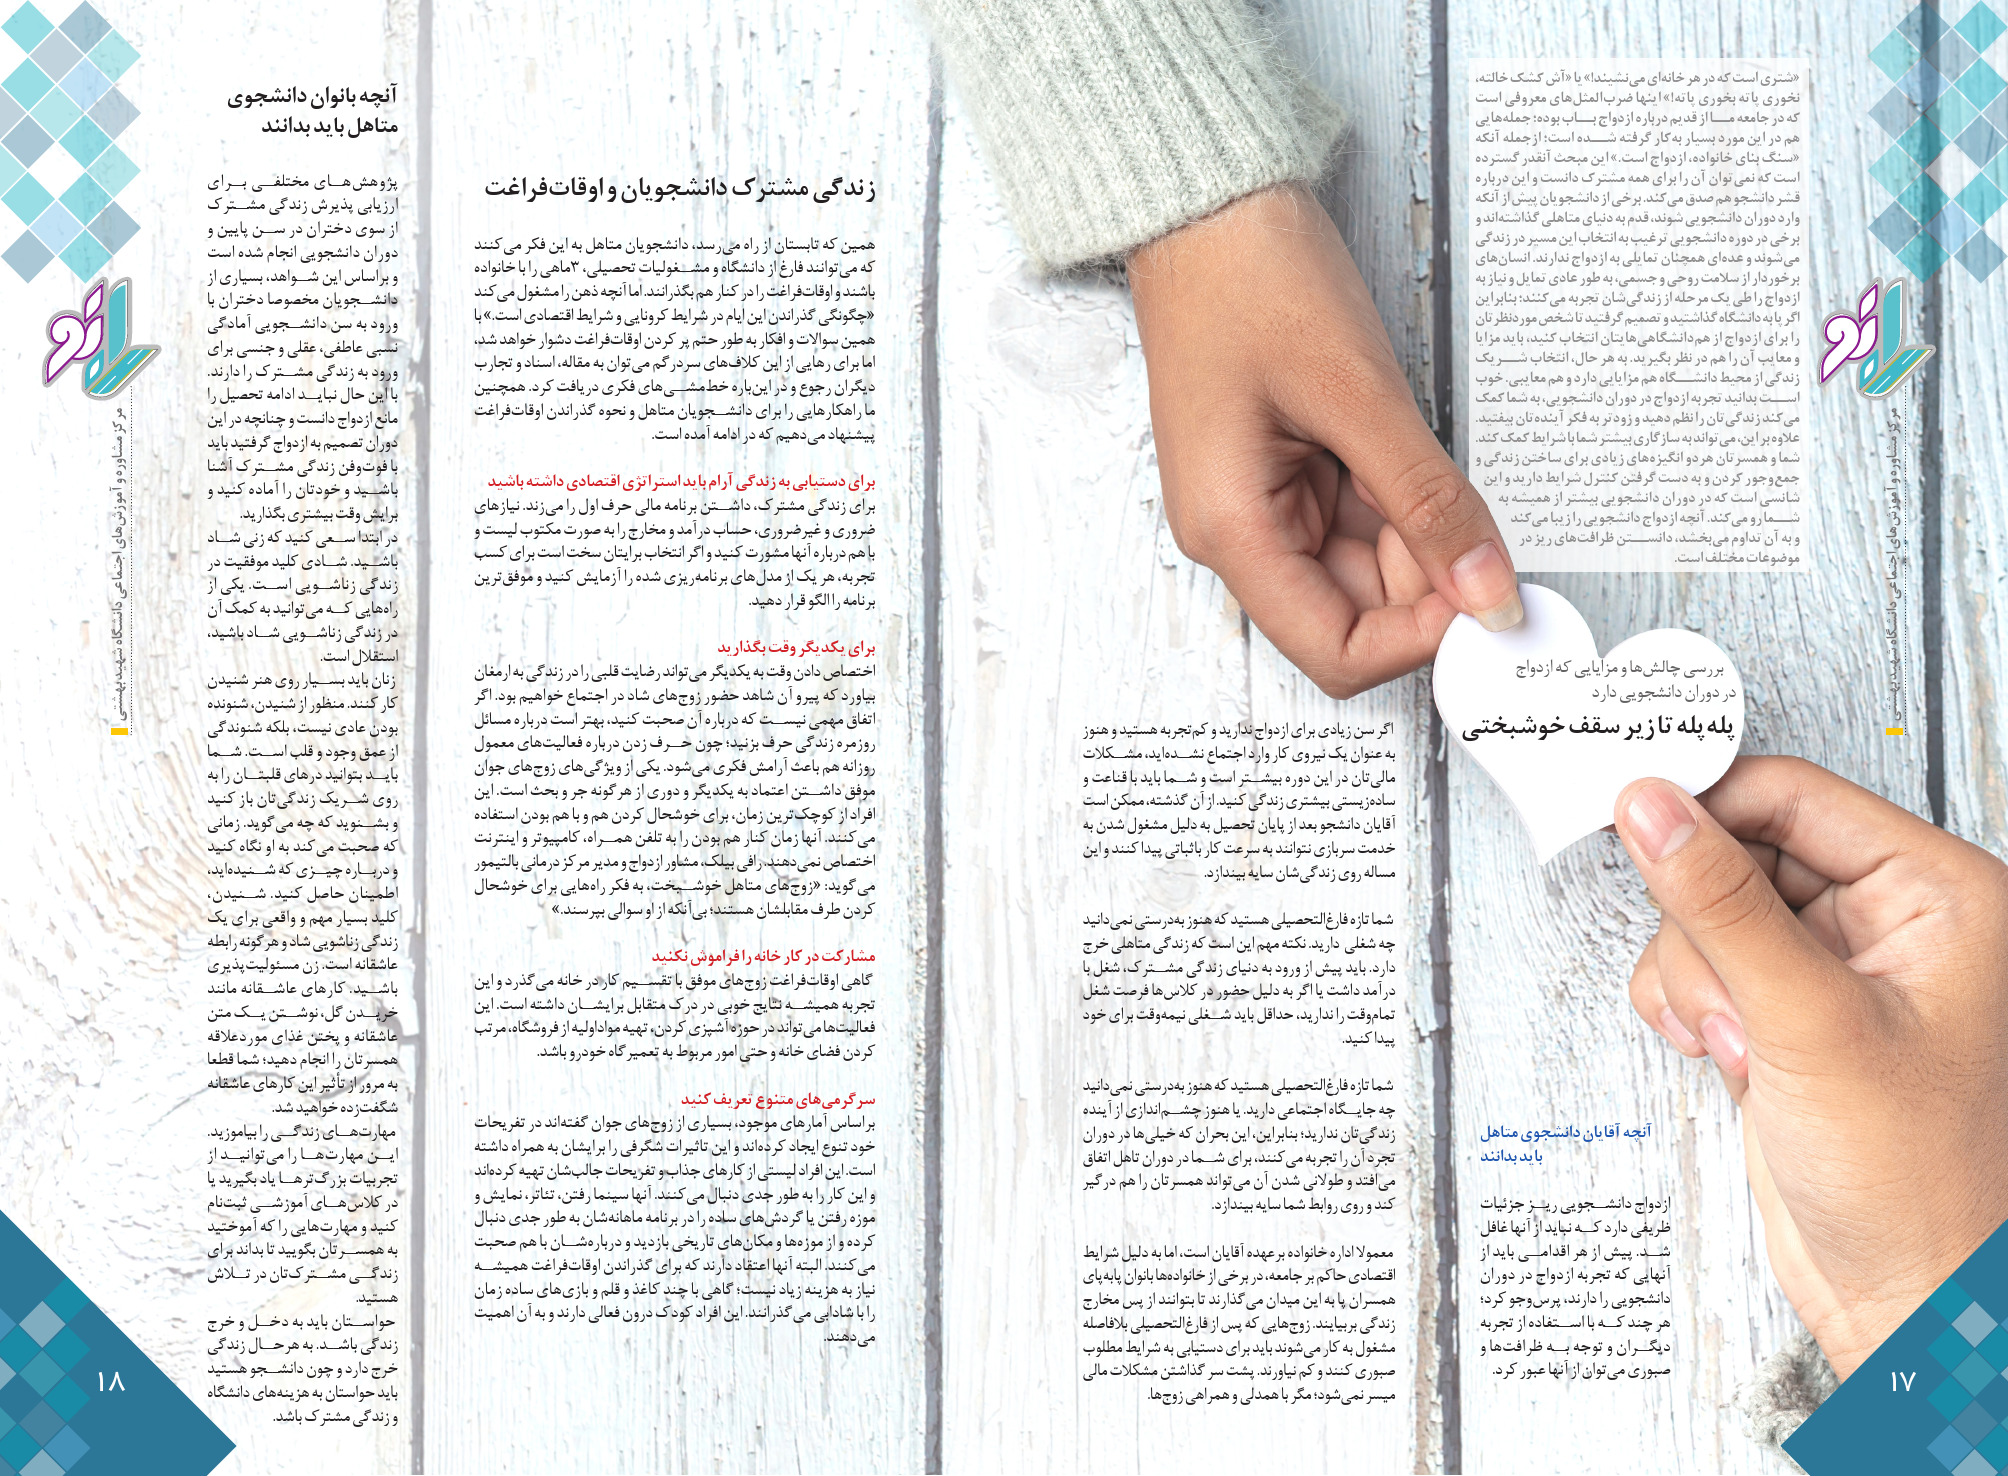 «شتری است که در هر خانه‌ای می‌نشیند!» یا «آش کشک خالته،
نخوری پاته بخوری پاته!» اینها ضرب‌المثل‌های معروفی است
که در جامعه ما از قدیم درباره ازدواج باب بوده؛ جمله‌هایی
هم در این مورد بسیار به‌کار گرفته شده است؛ ازجمله آنکه
«سنگ بنای خانواده، ازدواج است.» این مبحث آنقدر گسترده
است که نمی‌توان آن را برای همه مشترک دانست و این درباره
قشر دانشجو هم صدق می‌کند. برخی از دانشجویان پیش از آنکه
وارد دوران دانشجویی شوند، قدم به دنیای متاهلی گذاشته‌اند و
برخی در دوره دانشجویی ترغیب به انتخاب این مسیر در زندگی
می‌شوند و عده‌ای همچنان تمایلی به ازدواج ندارند. انسان‌های
برخوردار از سلامت روحی و جسمی، به طور عادی تمایل و نیاز به
ازدواج را طی یک مرحله از زندگی‌شان تجربه می‌کنند؛ بنابراین
اگر پا به دانشگاه گذاشتید و تصمیم گرفتید تا شخص موردنظرتان
را برای ازدواج از هم‌دانشگاهی‌هایتان انتخاب کنید، باید مزایا
و معایب آن را هم در نظر بگیرید. به هر حال، انتخاب شریک
زندگی از محیط دانشگاه هم مزایایی دارد و هم معایبی. خوب
است بدانید تجربه ازدواج در دوران دانشجویی، به شما کمک
می‌کند زندگی‌تان را نظم دهید و زودتر به فکر آینده‌تان بیفتید.
علاوه بر این، می‌تواند به سازگاری بیشتر شما با شرایط کمک کند.
شما و همسرتان هر دو انگیزه‌های زیادی برای ساختن زندگی و
جمع‌وجور کردن و به دست گرفتن کنترل شرایط دارید و این
شانسی است که در دوران دانشجویی بیشتر از همیشه به
شما رو می‌کند. آنچه ازدواج دانشجویی را زیبا می‌کند
و به آن تداوم می‌بخشد، دانستن ظرافت‌های ریز در
موضوعات مختلف است.
بررسی چالش‌ها و مزایایی که ازدواج
در دوران دانشجویی دارد
پله پله تا زیر سقف خوشبختی
آنچه آقایان دانشجوی متاهل
باید بدانند
ازدواج دانشجویی ریز جزئیات
ظریفی دارد که نباید از آنها غافل
شد. پیش از هر اقدامی باید از
آنهایی که تجربه ازدواج در دوران
دانشجویی را دارند، پرس‌وجو کرد؛
هر چند که با استفاده از تجربه
دیگران و توجه به ظرافت‌ها و
صبوری می‌توان از آنها عبور کرد.
اگر سن زیادی برای ازدواج ندارید و کم‌تجربه هستید و هنوز
به عنوان یک نیروی کار وارد اجتماع نشده‌اید، مشکلات
مالی‌تان در این دوره بیشتر است و شما باید با قناعت و
ساده‌زیستی بیشتری زندگی کنید. از آن گذشته، ممکن است
آقایان دانشجو بعد از پایان تحصیل به دلیل مشغول شدن به
خدمت سربازی نتوانند به سرعت کار باثباتی پیدا کنند و این
مساله روی زندگی‌شان سایه بیندازد.
شما تازه فارغ‌التحصیلی هستید که هنوز به‌درستی نمی‌دانید
چه شغلی دارید. نکته مهم این است که زندگی متاهلی خرج
دارد. باید پیش از ورود به دنیای زندگی مشترک، شغل با
درآمد داشت یا اگر به دلیل حضور در کلاس‌ها فرصت شغل
تمام‌وقت را ندارید، حداقل باید شغلی نیمه‌وقت برای خود
پیدا کنید.
شما تازه فارغ‌التحصیلی هستید که هنوز به‌درستی نمی‌دانید
چه جایگاه اجتماعی دارید. یا هنوز چشم‌اندازی از آینده
زندگی‌تان ندارید؛ بنابراین، این بحران که خیلی‌ها در دوران
تجرد آن را تجربه می‌کنند، برای شما در دوران تاهل اتفاق
می‌افتد و طولانی شدن آن می‌تواند همسرتان را هم درگیر
کند و روی روابط شما سایه بیندازد.
معمولا اداره خانواده برعهده آقایان است، اما به دلیل شرایط
اقتصادی حاکم بر جامعه، در برخی از خانواده‌ها بانوان پابه‌پای
همسران پا به این میدان می‌گذارند تا بتوانند از پس مخارج
زندگی بربیایند. زوج‌هایی که پس از فارغ‌التحصیلی بلافاصله
مشغول به کار می‌شوند باید برای دستیابی به شرایط مطلوب
صبوری کنند و کم نیاورند. پشت سر گذاشتن مشکلات مالی
میسر نمی‌شود؛ مگر با همدلی و همراهی زوج‌ها.
راه نو
مرکز مشاوره و آموزش‌های اجتماعی دانشگاه شهید بهشتی
۱۷
زندگی مشترک دانشجویان و اوقات‌فراغت
همین که تابستان از راه می‌رسد، دانشجویان متاهل به این فکر می‌کنند
که می‌توانند فارغ از دانشگاه و مشغولیات تحصیلی، ۳ماهی را با خانواده
باشند و اوقات‌فراغت را در کنار هم بگذرانند. اما آنچه ذهن را مشغول می‌کند
«چگونگی گذراندن این ایام در شرایط کرونایی و شرایط اقتصادی است.» با
همین سوالات و افکار به طور حتم پر کردن اوقات‌فراغت دشوار خواهد شد،
اما برای رهایی از این کلاف‌های سردرگم می‌توان به مقاله، اسناد و تجارب
دیگران رجوع و در این‌باره خط‌مشی‌های فکری دریافت کرد. همچنین
ما راهکارهایی را برای دانشجویان متاهل و نحوه گذراندن اوقات‌فراغت
پیشنهاد می‌دهیم که در ادامه آمده است.
برای دستیابی به زندگی آرام باید استراتژی اقتصادی داشته باشید
برای زندگی مشترک، داشتن برنامه مالی حرف اول را می‌زند. نیازهای
ضروری و غیرضروری، حساب درآمد و مخارج را به صورت مکتوب لیست و
با هم درباره آنها مشورت کنید و اگر انتخاب برایتان سخت است برای کسب
تجربه، هر یک از مدل‌های برنامه‌ریزی شده را آزمایش کنید و موفق‌ترین
برنامه را الگو قرار دهید.
برای یکدیگر وقت بگذارید
اختصاص دادن وقت به یکدیگر می‌تواند رضایت قلبی را در زندگی به ارمغان
بیاورد که پیرو آن شاهد حضور زوج‌های شاد در اجتماع خواهیم بود. اگر
اتفاق مهمی نیست که درباره آن صحبت کنید، بهتر است درباره مسائل
روزمره زندگی حرف بزنید؛ چون حرف زدن درباره فعالیت‌های معمول
روزانه هم باعث آرامش فکری می‌شود. یکی از ویژگی‌های زوج‌های جوان
موفق داشتن اعتماد به یکدیگر و دوری از هرگونه جر و بحث است. این
افراد از کوچک‌ترین زمان، برای خوشحال کردن هم و با هم بودن استفاده
می‌کنند. آنها زمان کنار هم بودن را به تلفن همراه، کامپیوتر و اینترنت
اختصاص نمی‌دهند. رافی بیلک، مشاور ازدواج و مدیر مرکز درمانی بالتیمور
می‌گوید: «زوج‌های متاهل خوشبخت، به فکر راه‌هایی برای خوشحال
کردن طرف مقابلشان هستند؛ بی‌آنکه از او سوالی بپرسند.»
مشارکت در کار خانه را فراموش نکنید
گاهی اوقات‌فراغت زوج‌های موفق با تقسیم کار در خانه می‌گذرد و این
تجربه همیشه نتایج خوبی در درک متقابل برایشان داشته است. این
فعالیت‌ها می‌تواند در حوزه آشپزی کردن، تهیه مواداولیه از فروشگاه، مرتب
کردن فضای خانه و حتی امور مربوط به تعمیرگاه خودرو باشد.
سرگرمی‌های متنوع تعریف کنید
براساس آمارهای موجود، بسیاری از زوج‌های جوان گفته‌اند در تفریحات
خود تنوع ایجاد کرده‌اند و این تاثیرات شگرفی را برایشان به همراه داشته
است. این افراد لیستی از کارهای جذاب و تفریحات جالب‌شان تهیه کرده‌اند
و این کار را به طور جدی دنبال می‌کنند. آنها سینما رفتن، تئاتر، نمایش و
موزه رفتن یا گردش‌های ساده را در برنامه ماهانه‌شان به طور جدی دنبال
کرده و از موزه‌ها و مکان‌های تاریخی بازدید و درباره‌شان با هم صحبت
می‌کنند. البته آنها اعتقاد دارند که برای گذراندن اوقات‌فراغت همیشه
نیاز به هزینه زیاد نیست؛ گاهی با چند کاغذ و قلم و بازی‌های ساده زمان
را با شادابی می‌گذرانند. این افراد کودک درون فعالی دارند و به آن اهمیت
می‌دهند.
آنچه بانوان دانشجوی
متاهل باید بدانند
پژوهش‌های مختلفی برای
ارزیابی پذیرش زندگی مشترک
از سوی دختران در سن پایین و
دوران دانشجویی انجام شده است
و براساس این شواهد، بسیاری از
دانشجویان مخصوصا دختران با
ورود به سن دانشجویی آمادگی
نسبی عاطفی، عقلی و جنسی برای
ورود به زندگی مشترک را دارند.
با این حال نباید ادامه تحصیل را
مانع ازدواج دانست و چنانچه در این
دوران تصمیم به ازدواج گرفتید باید
با فوت‌وفن زندگی مشترک آشنا
باشید و خودتان را آماده کنید و
برایش وقت بیشتری بگذارید.
در ابتدا سعی کنید که زنی شاد
باشید. شادی کلید موفقیت در
زندگی زناشویی است. یکی از
راه‌هایی که می‌توانید به کمک آن
در زندگی زناشویی شاد باشید،
استقلال است.
زنان باید بسیار روی هنر شنیدن
کار کنند. منظور از شنیدن، شنونده
بودن عادی نیست، بلکه شنوندگی
از عمق وجود و قلب است. شما
باید بتوانید درهای قلبتان را به
روی شریک زندگی‌تان باز کنید
و بشنوید که چه می‌گوید. زمانی
که صحبت می‌کند به او نگاه کنید
و درباره چیزی که شنیده‌اید،
اطمینان حاصل کنید. شنیدن،
کلید بسیار مهم و واقعی برای یک
زندگی زناشویی شاد و هرگونه رابطه
عاشقانه است. زن مسئولیت‌پذیری
باشید. کارهای عاشقانه مانند
خریدن گل، نوشتن یک متن
عاشقانه و پختن غذای موردعلاقه
همسرتان را انجام دهید؛ شما قطعا
به مرور از تأثیر این کارهای عاشقانه
شگفت‌زده خواهید شد.
مهارت‌های زندگی را بیاموزید.
این مهارت‌ها را می‌توانید از
تجربیات بزرگ‌ترها یاد بگیرید یا
در کلاس‌های آموزشی ثبت‌نام
کنید و مهارت‌هایی را که آموختید
به همسرتان بگویید تا بداند برای
زندگی مشترک‌تان در تلاش
هستید.
حواستان باید به دخل و خرج
زندگی باشد. به هرحال زندگی
خرج دارد و چون دانشجو هستید
باید حواستان به هزینه‌های دانشگاه
و زندگی مشترک باشد.
راه نو
مرکز مشاوره و آموزش‌های اجتماعی دانشگاه شهید بهشتی
۱۸